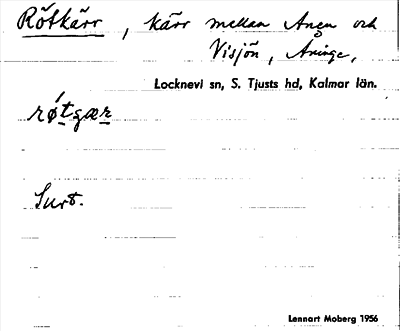 Rötkärr, kärr mellan Anen och
Visjön, Åninge,
Locknevi sn, S. Tjusts hd, Kalmar län.
rǿtɡær
Surt.
Lennart Moberg 1956